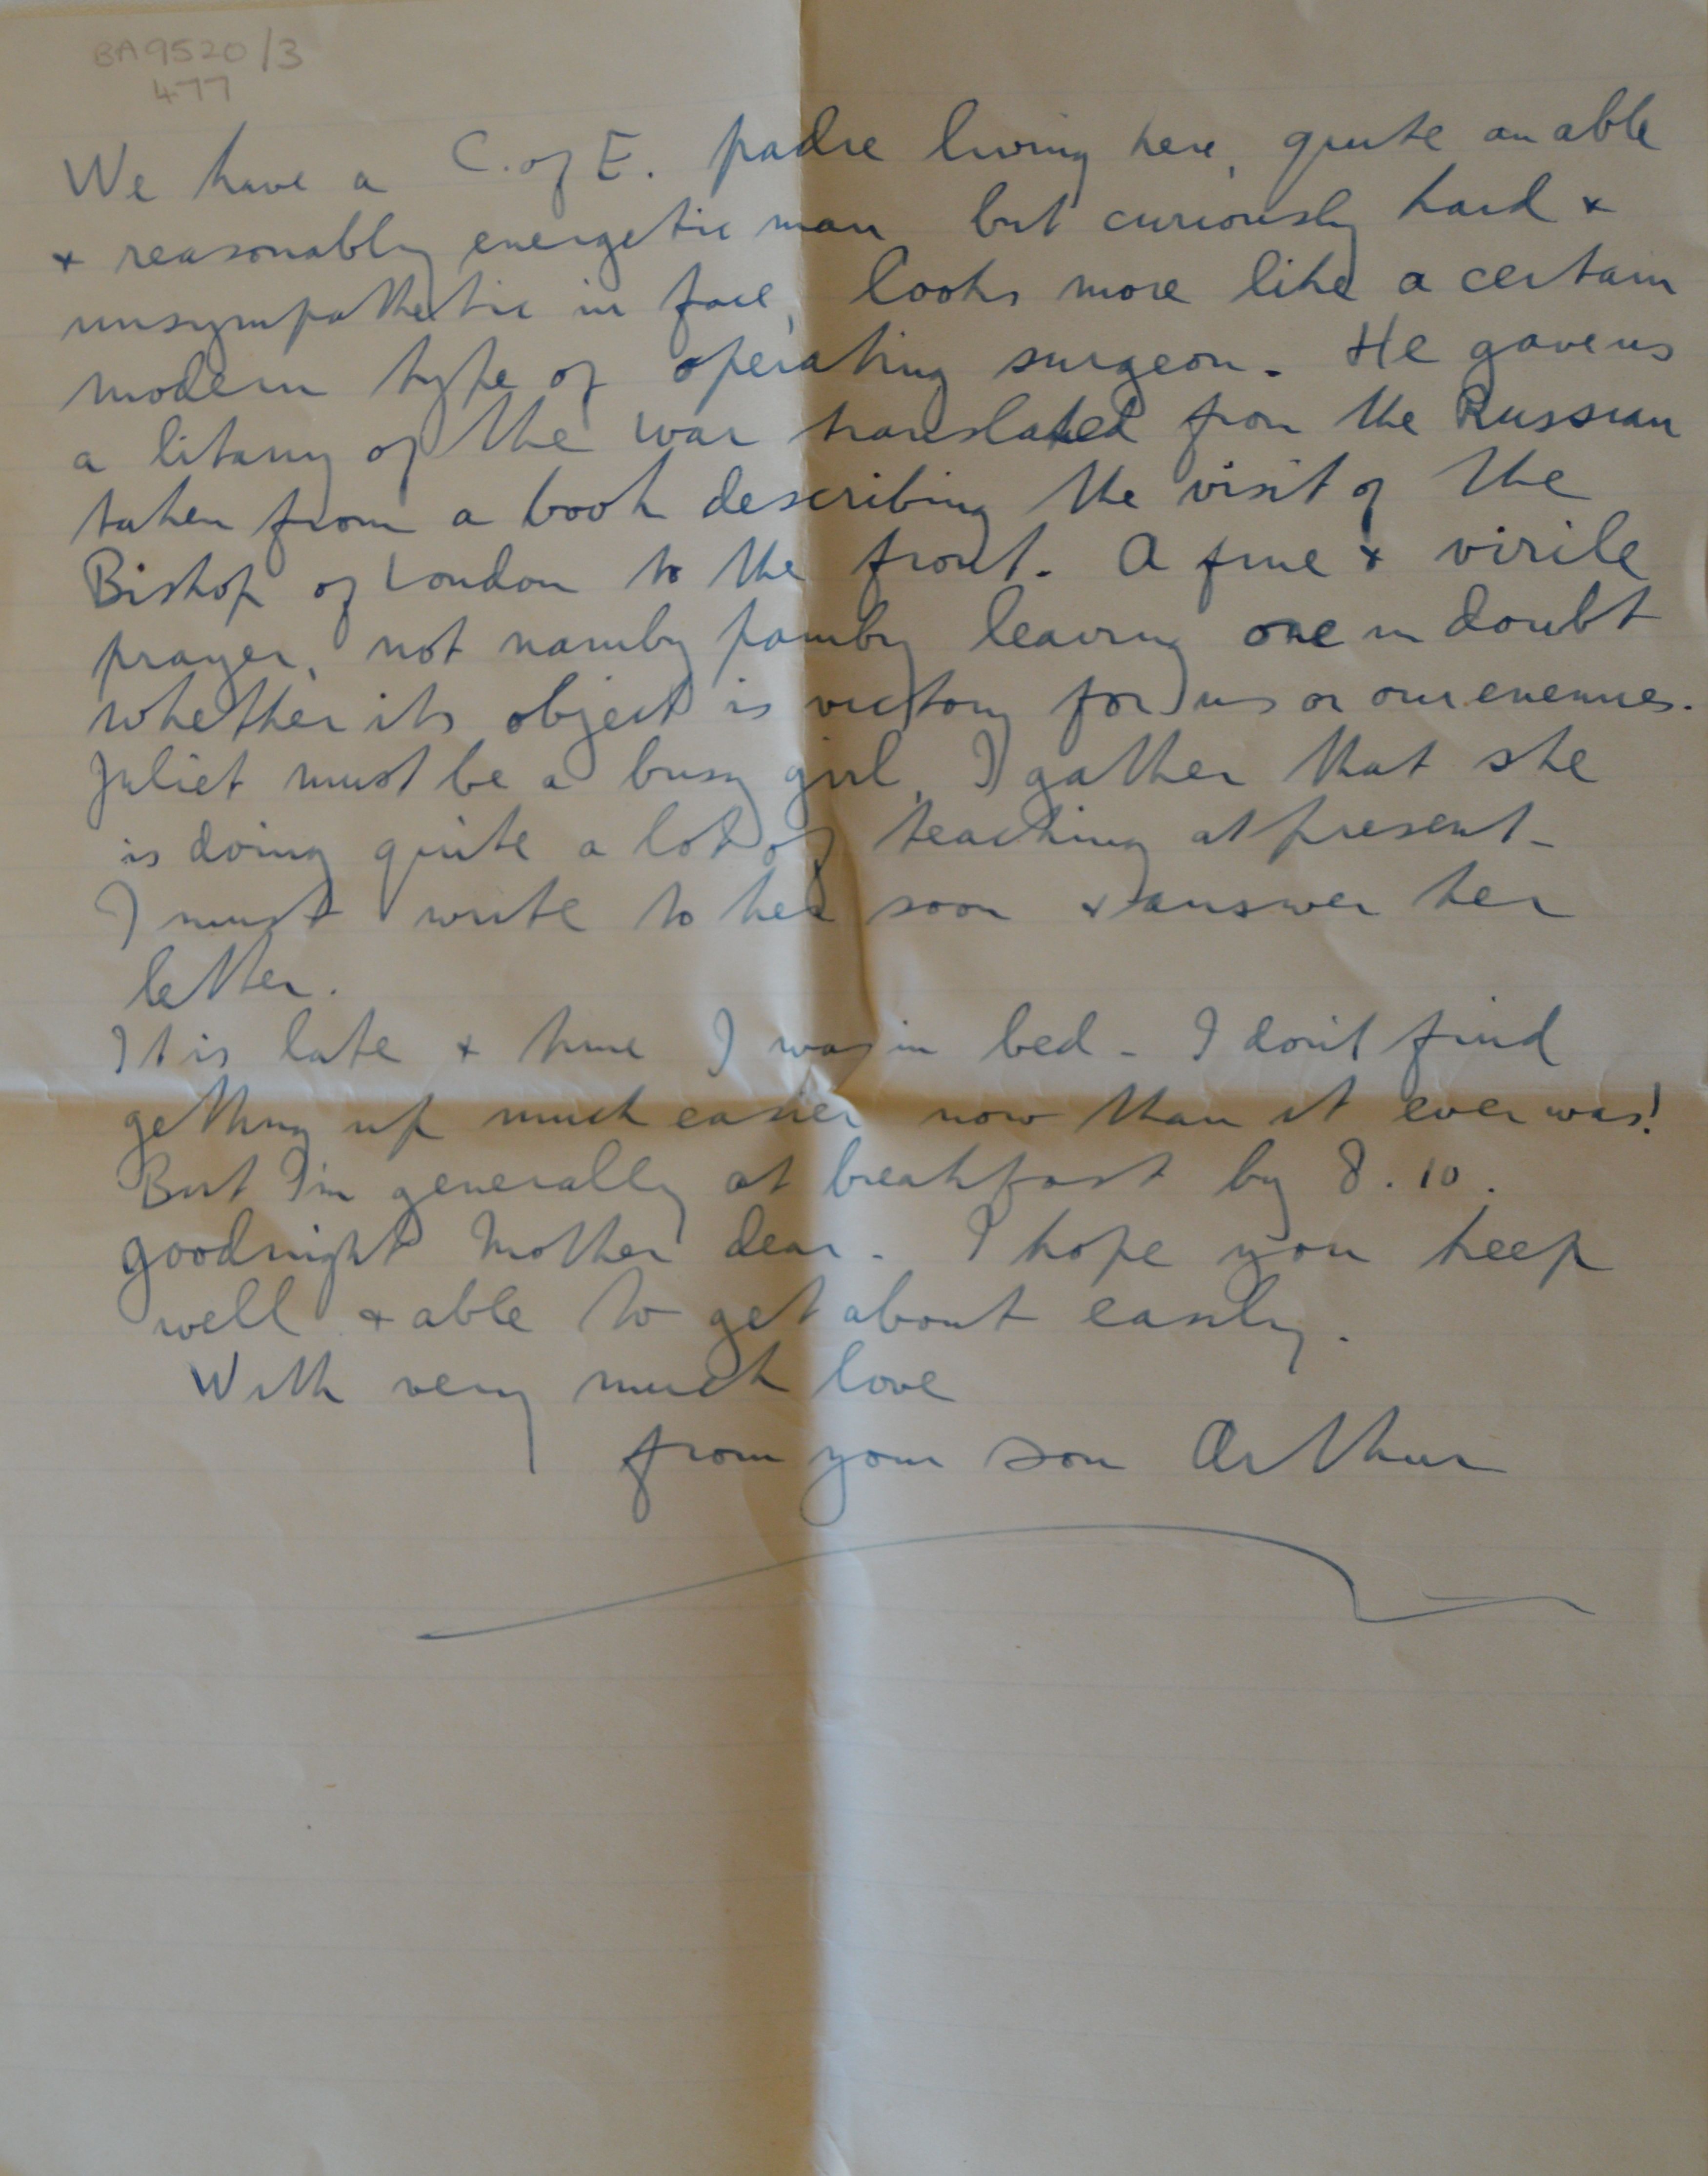 BA9520/3
477
We have a C. of E. padre living here, quite an able
& reasonably energetic man but curiously hard &
unsympathetic in face, looks more like a certain
modern type of operating surgeon. He gave us
a litany of the war translated from the Russian
taken from a book describing the visit of the
Bishop of London to the front. A fine & virile
prayer, not namby pamby leaving one in doubt
whether its object is victory for us or our enemies.
Juliet must be a busy girl, I gather that she
is doing quite a lot of teaching at present -
I must write to her soon & answer her
letter.
It is late & time I was in bed - I don't find
getting up much easier now than it ever was!
But I'm generally at breakfast by 8.10.
goodnight Mother dear - I hope you keep
well & able to get about easily.
With very much love
from your son Arthur